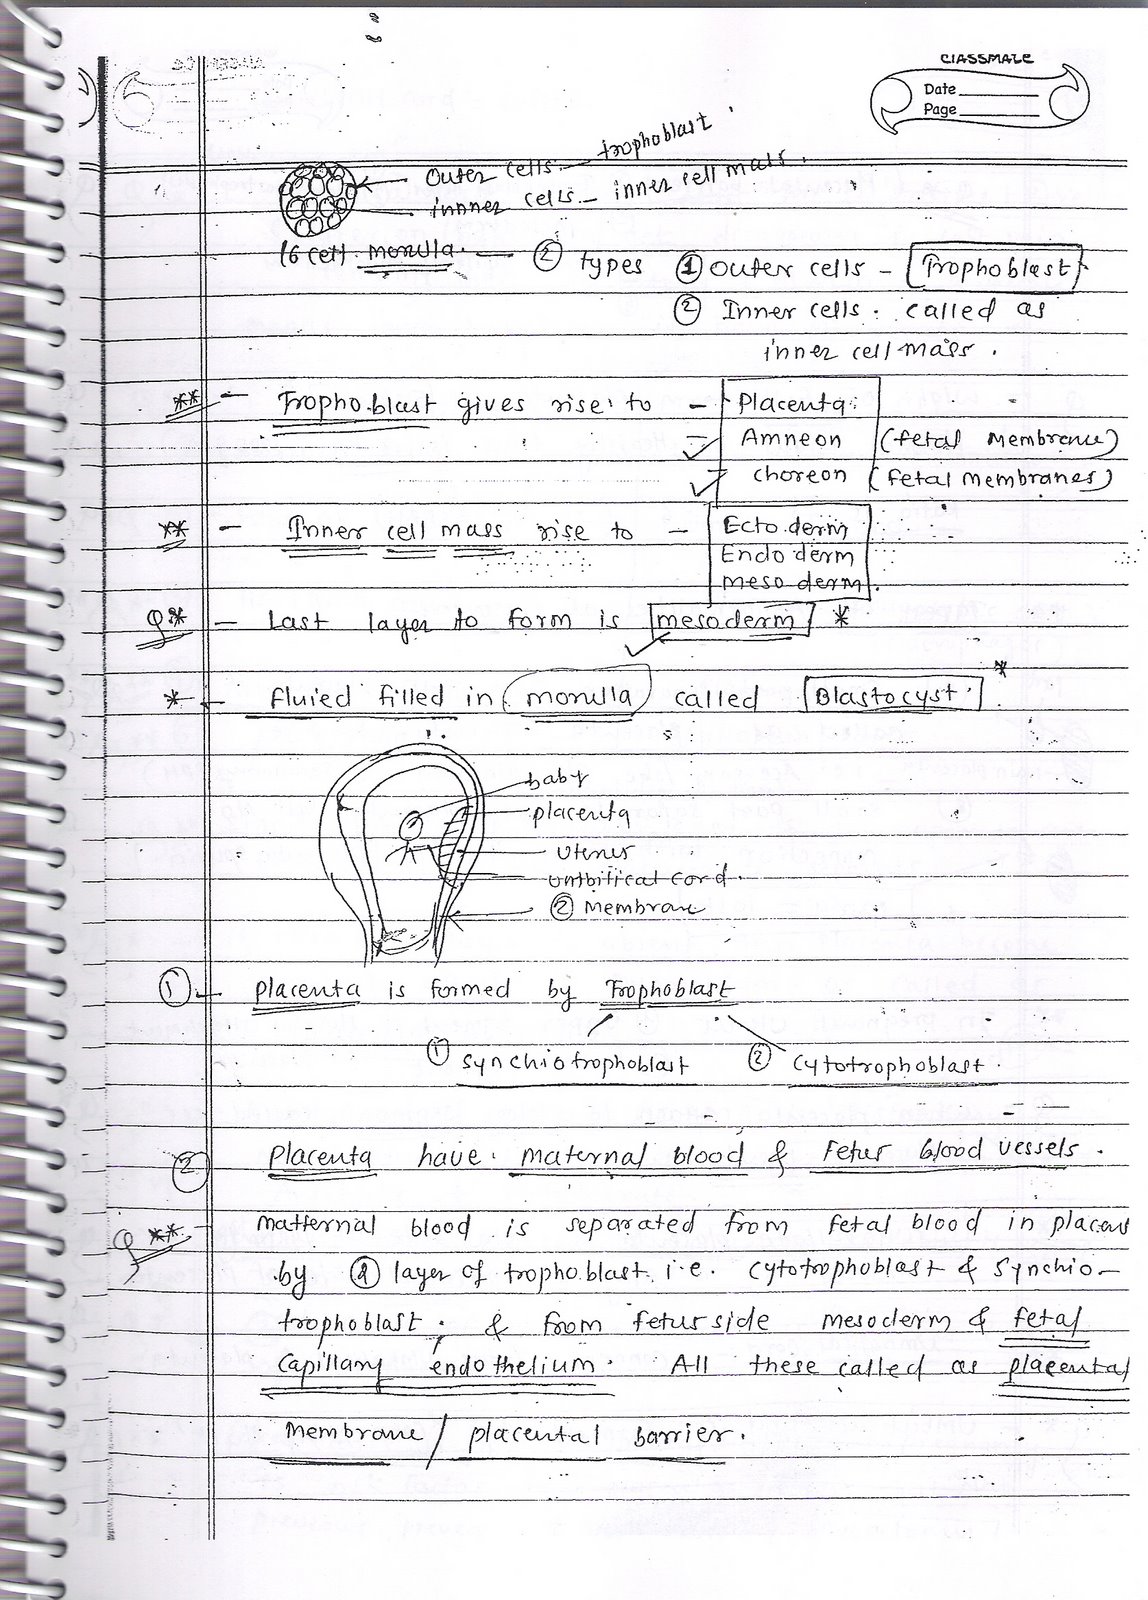 CLASSMATE
Date
Page
Outer cells - trophoblast
innner cells - inner cell mass.
16 cell morulla. — ② types ① Outer cells - Trophoblast
② Inner cells. called as
inner cell mass.
** - Trophoblast gives rise to - Placenta
Amneon (fetal Membrane)
Choreon (fetal membranes)
** - Inner cell mass rise to - Ectoderm
Endoderm
mesoderm.
Q* - Last layer to form is mesoderm *
* - fluied filled in morulla called Blastocyst. *
baby
placenta
uterus
umbilical cord.
② Membrane
① - placenta is formed by Trophoblast
① synchiotrophoblast ② Cytotrophoblast.
② Placenta have. maternal blood & Fetus blood vessels.
Q ** - matternal blood is separated from fetal blood in placent
by ② layer of trophoblast i.e. cytotrophoblast & synchio-
trophoblast. & from fetus side mesoderm & fetal
capillary endothelium. All these called as placental
membrane / placental barrier.